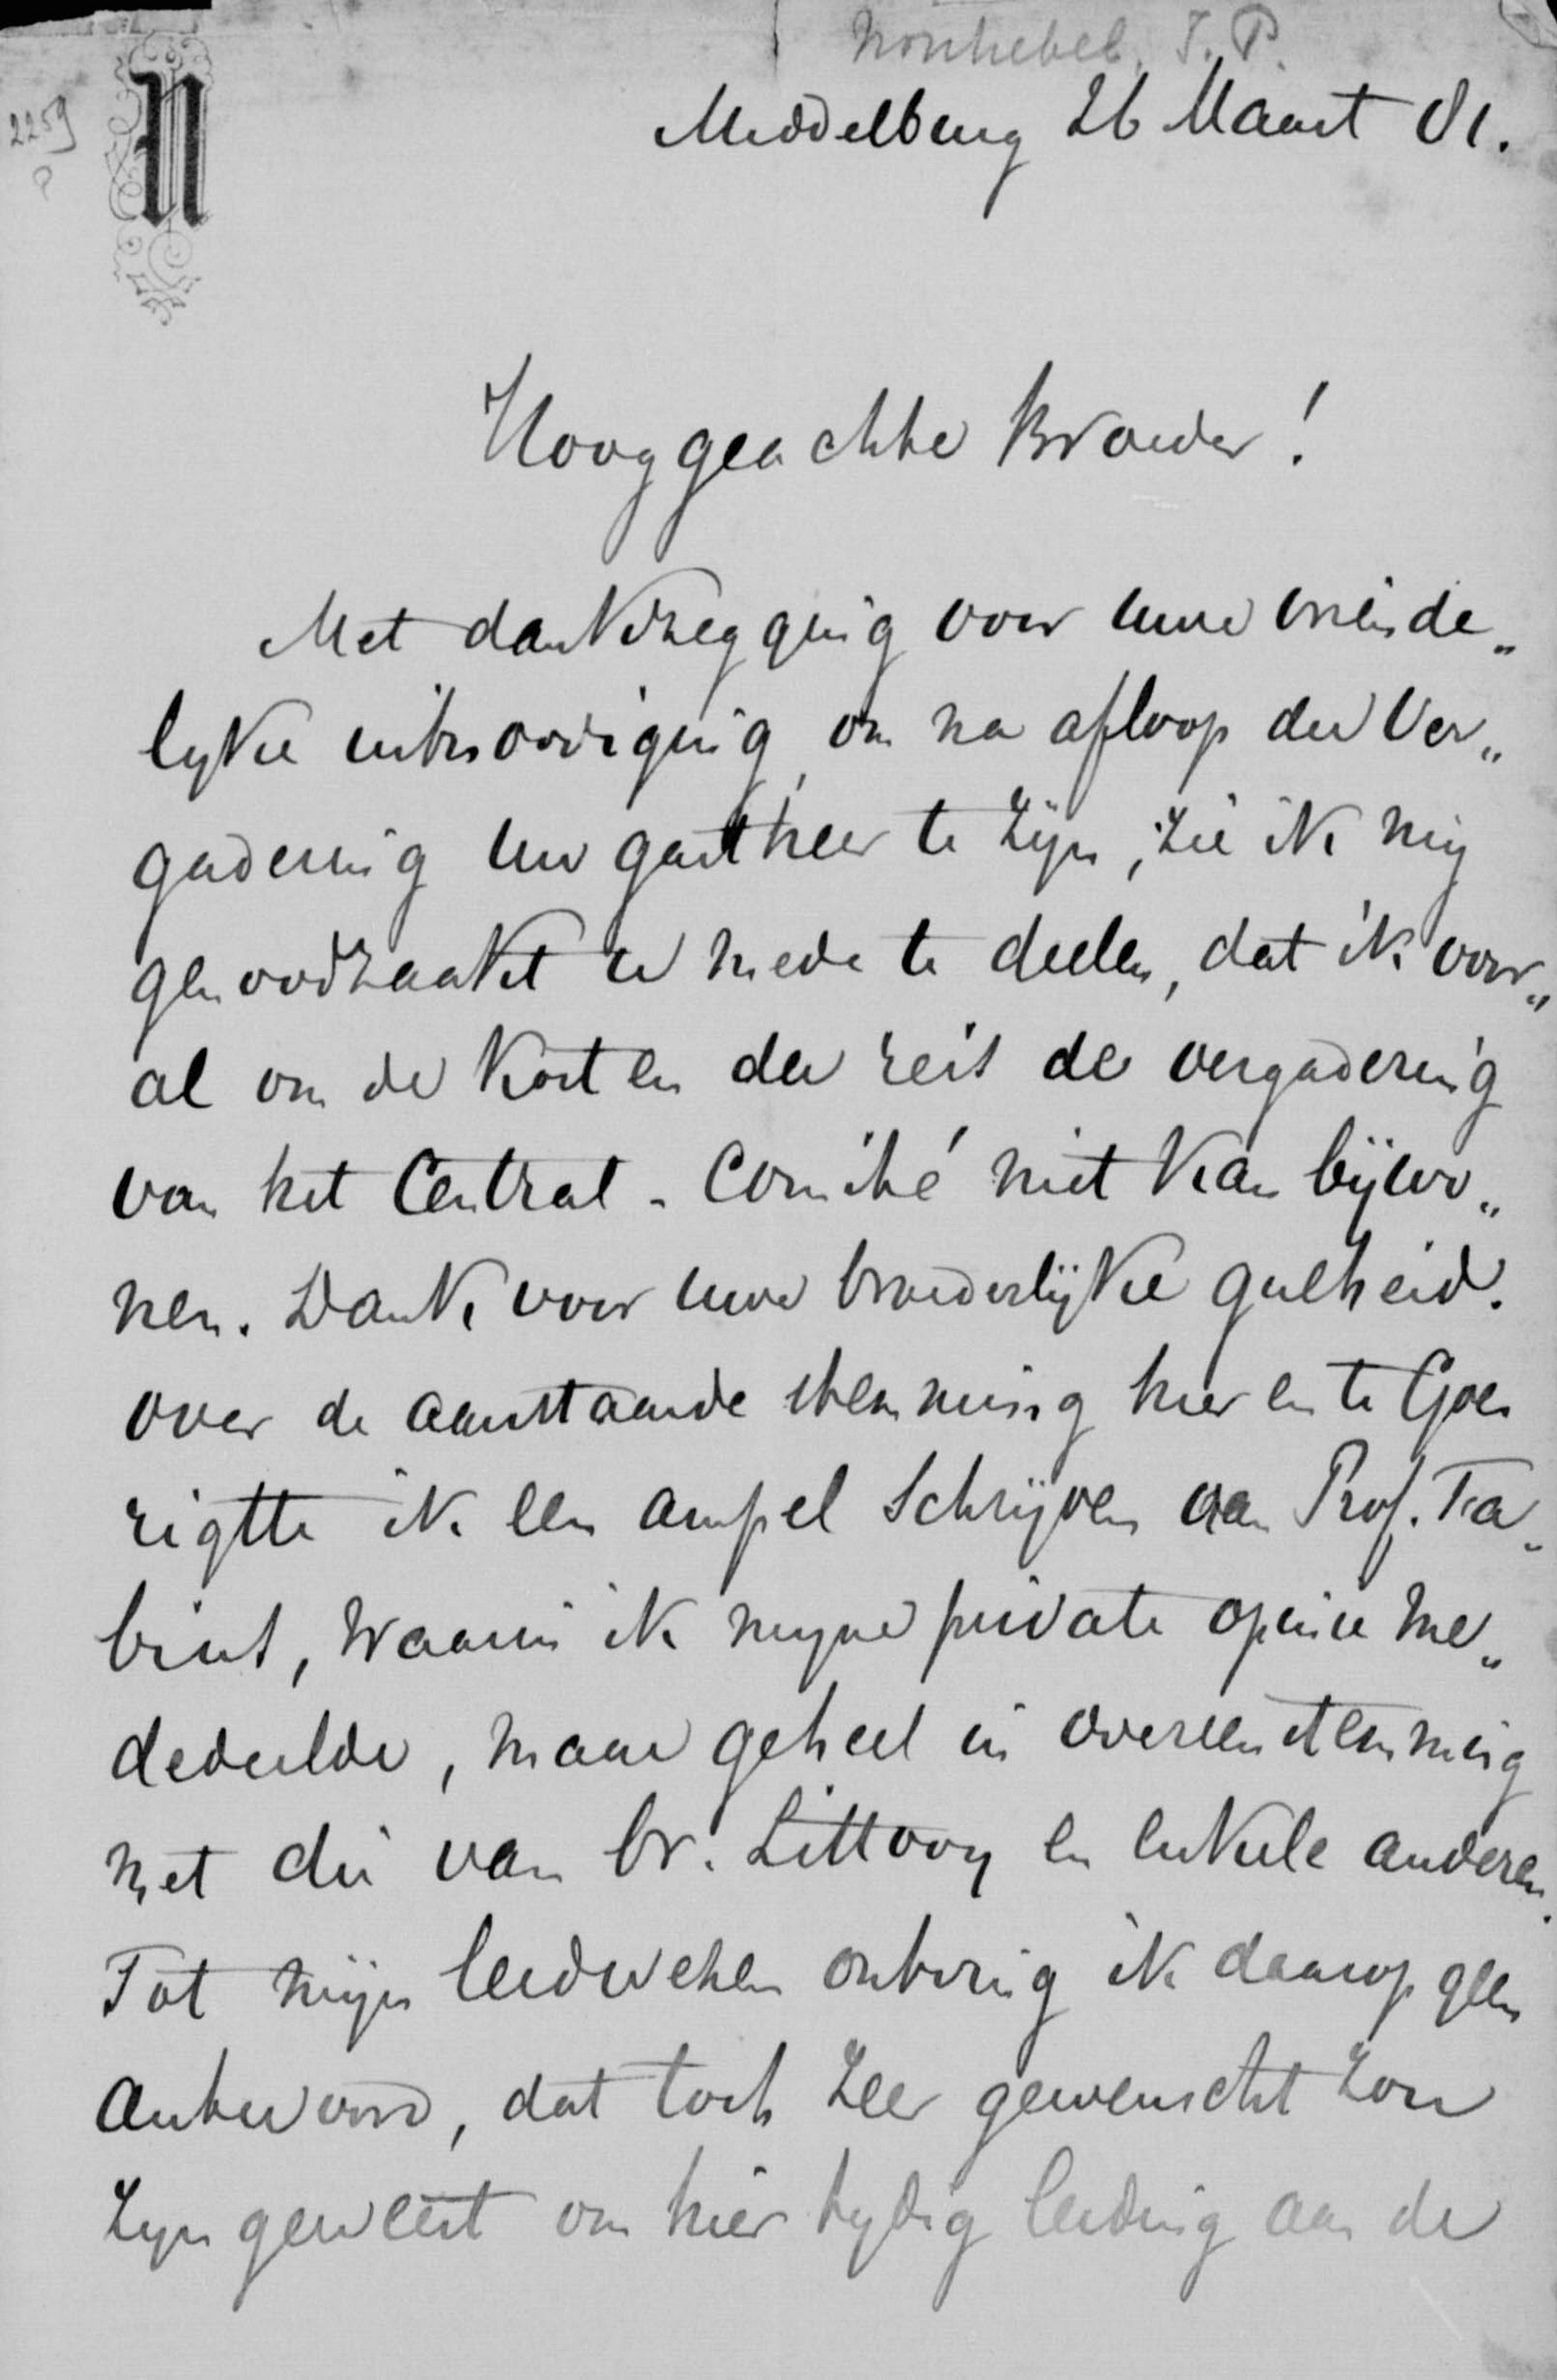 Nonhebel. J. P.
Middelburg 26 Maart 81.
2259
N
Hooggeachte Broeder!
Met dankzegging voor uwe vriende„
lyke uitnoodiging, om na afloop der Ver„
gadering uw gastheer te zijn, zie ik mij
genoodzaakt u mede te deelen, dat ik voor„
al om de kosten der reis de vergadering
van het Central-Comité niet kan bijwo„
nen. Dank voor uwe broederlijke gulheid.
Over de aanstaande stemming hier en te Goes
rigtte ik een ampel schrijven aan Prof. Fa„
bius, waarin ik myne private opinie me„
dedeelde, maar geheel in overeenstemming
met die van br. Littooy en enkele anderen.
Tot mijn leedwezen ontving ik daarop geen
antwoord, dat toch zeer gewenscht zou
zyn geweest om hier tydig leiding aan de